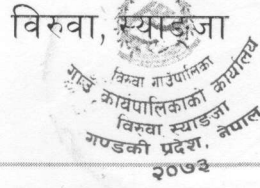 विरुवा, स्याङजा
विरुवा गाउँपालिका
गाउँ कार्यपालिकाको कार्यालय
विरुवा, स्याङजा
गण्डकी प्रदेश, नेपाल
२०७३